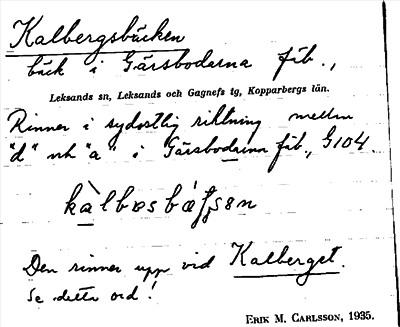 Kalbergsbäcken
bäck i Gärsbodarna fäb.,
Leksands sn, Leksands och Gagnefs tg, Kopparbergs län.
Rinner i sydostlig riktning mellan
"d" och "a" i Gärsbodarna fäb., G104.
Den rinner upp vid Kalberget.
Se detta ord!
ERIK M. CARLSSON, 1935.